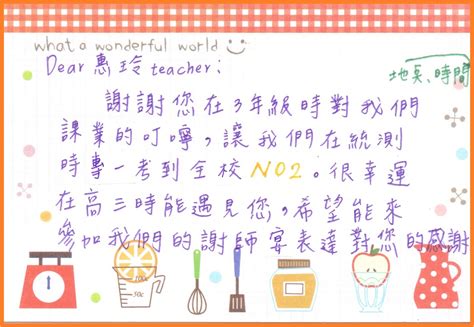 what a wonderful world
Dear 惠玲 teacher:
地點、時間
謝謝您在3年級時對我們
課業的叮嚀，讓我們在統測
時專一考到全校NO2。很幸運
在高三時能遇見您，希望能來
參加我們的謝師宴表達對您的感謝
100c
50c